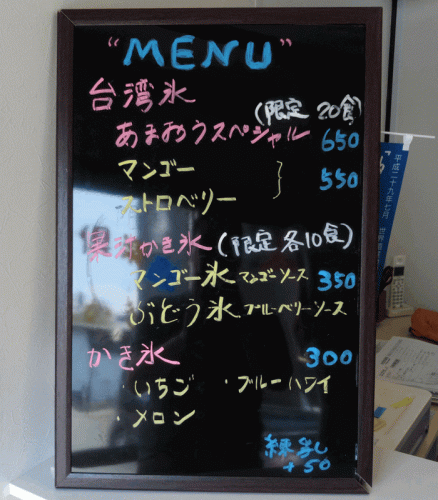 "MENU"
台湾氷
(限定 20食)
あまおうスペシャル 650
マンゴー
ストロベリー 550
果汁かき氷 (限定 各10食)
マンゴー氷 マンゴーソース 350
ぶどう氷 ブルーベリーソース
かき氷 300
・いちご ・ブルーハワイ
・メロン
練乳
+50
平成二十九年七月 世界